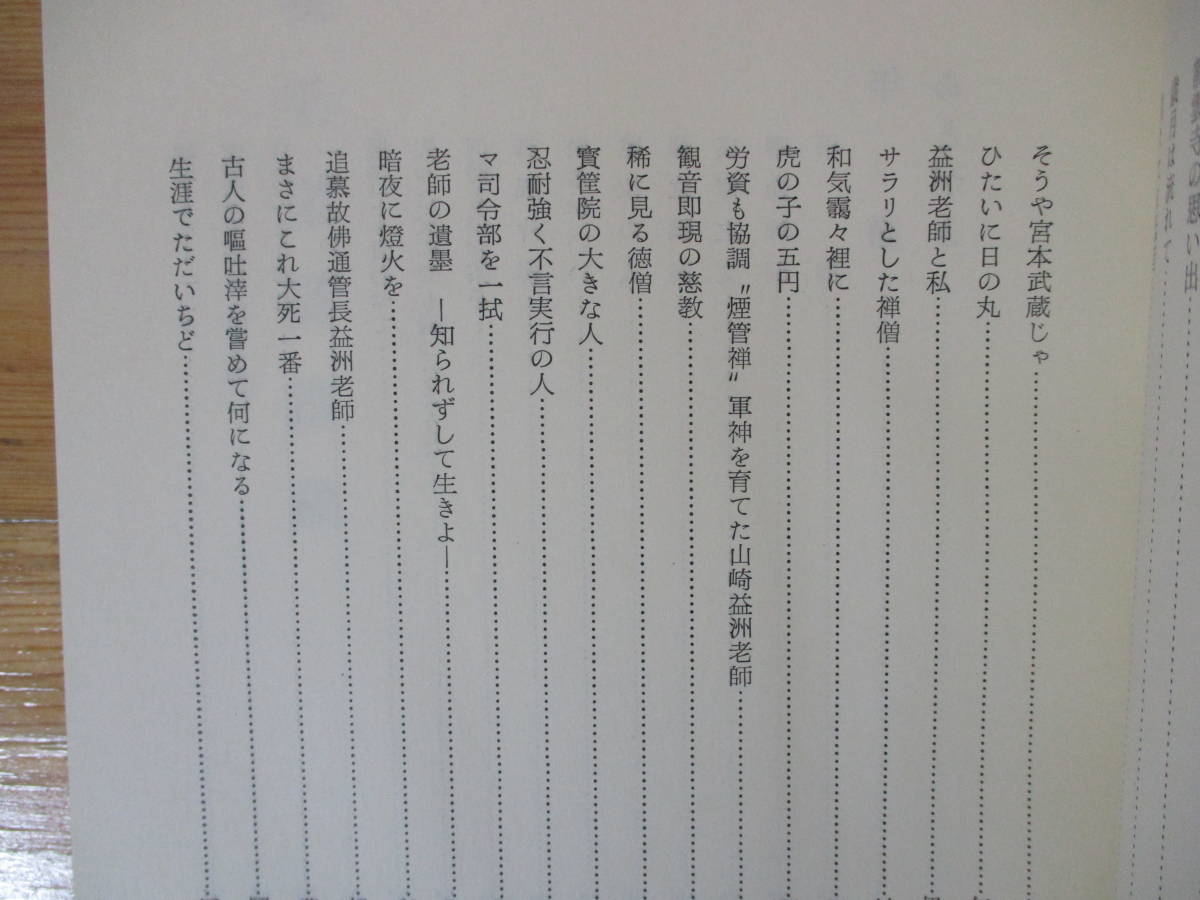 い出
は流れて
そうや宮本武蔵じゃ
ひたいに日の丸
益洲老師と私
サラリとした禅僧
和気靄々裡に
虎の子の五円
労資も協調〝煙管禅〟軍神を育てた山崎益洲老師
観音即現の慈教
稀に見る徳僧
寳筐院の大きな人
忍耐強く不言実行の人
マ司令部を一拭
老師の遺墨 ―知られずして生きよ―
暗夜に燈火を
追慕故佛通管長益洲老師
まさにこれ大死一番
古人の嘔吐滓を嘗めて何になる
生涯でただいちど